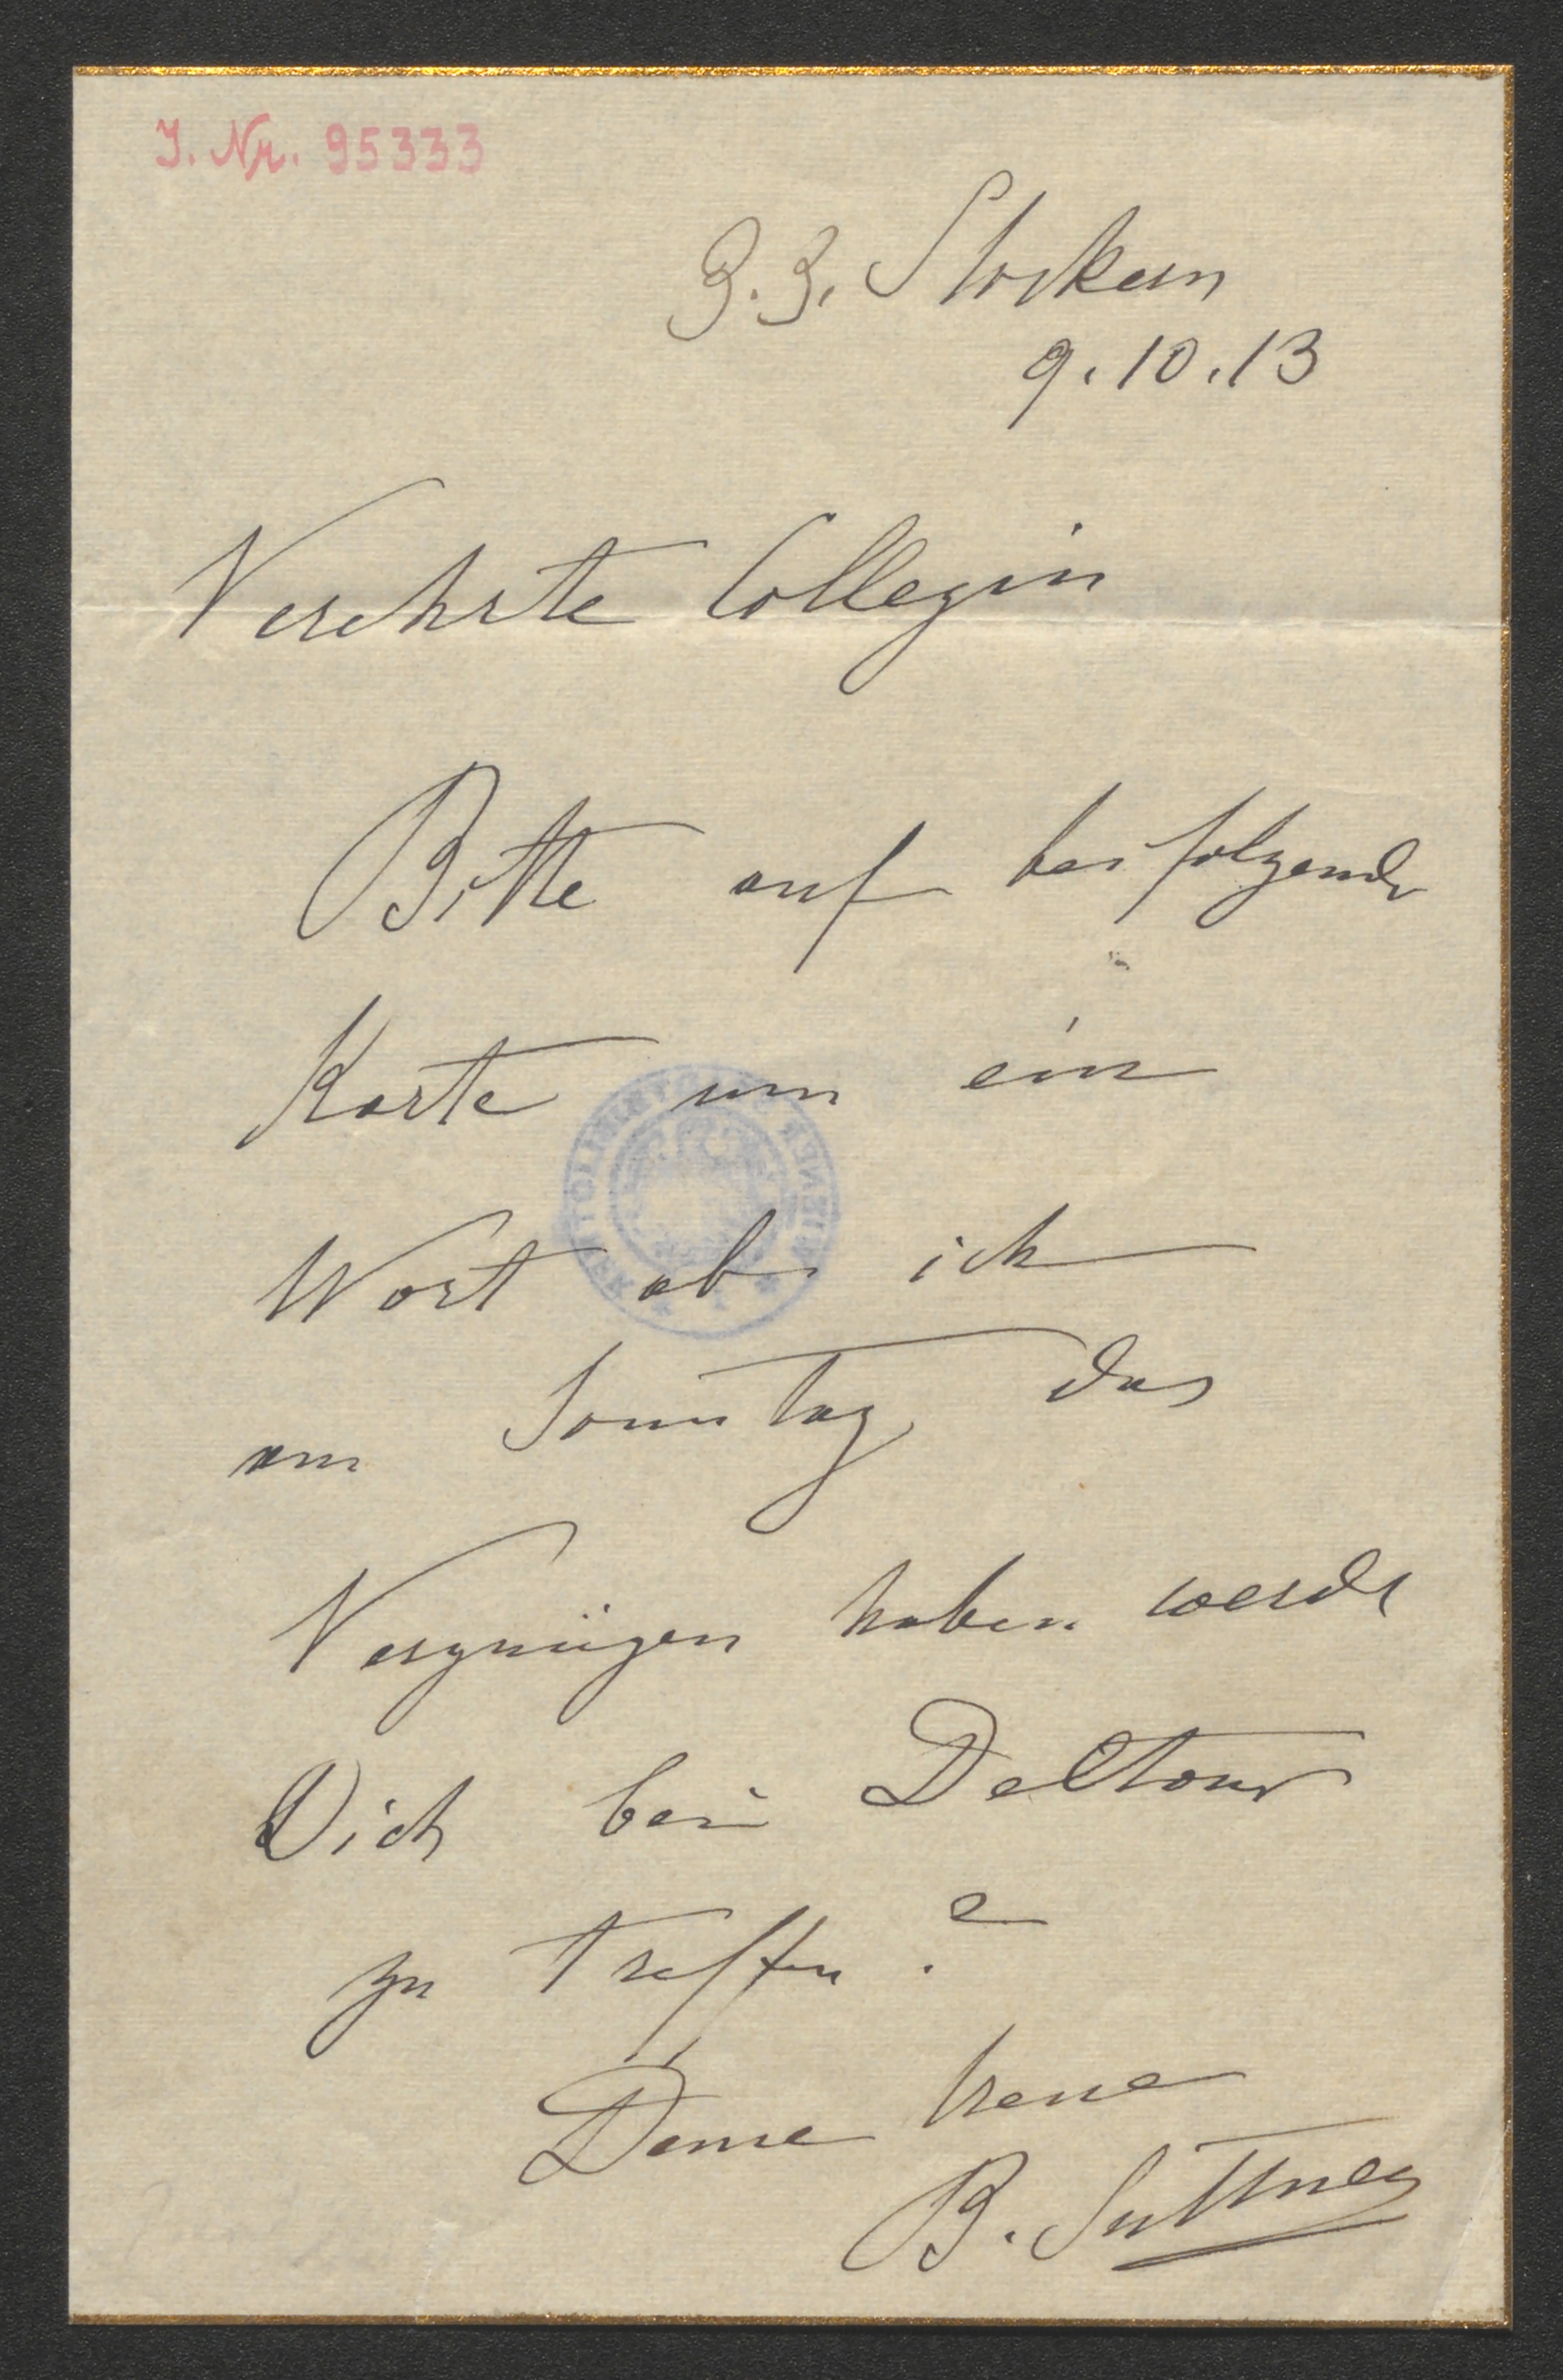 J. Nr. 95333
Z. Z. Stockern
9.10.13
Verehrte Collegin
Bitte auf beifolgender
Karte um ein
Wort ob ich
am Sonntag das
Vergnügen haben werde
Dich bei Deltour
zu treffen?
Deine treue
B. Suttner